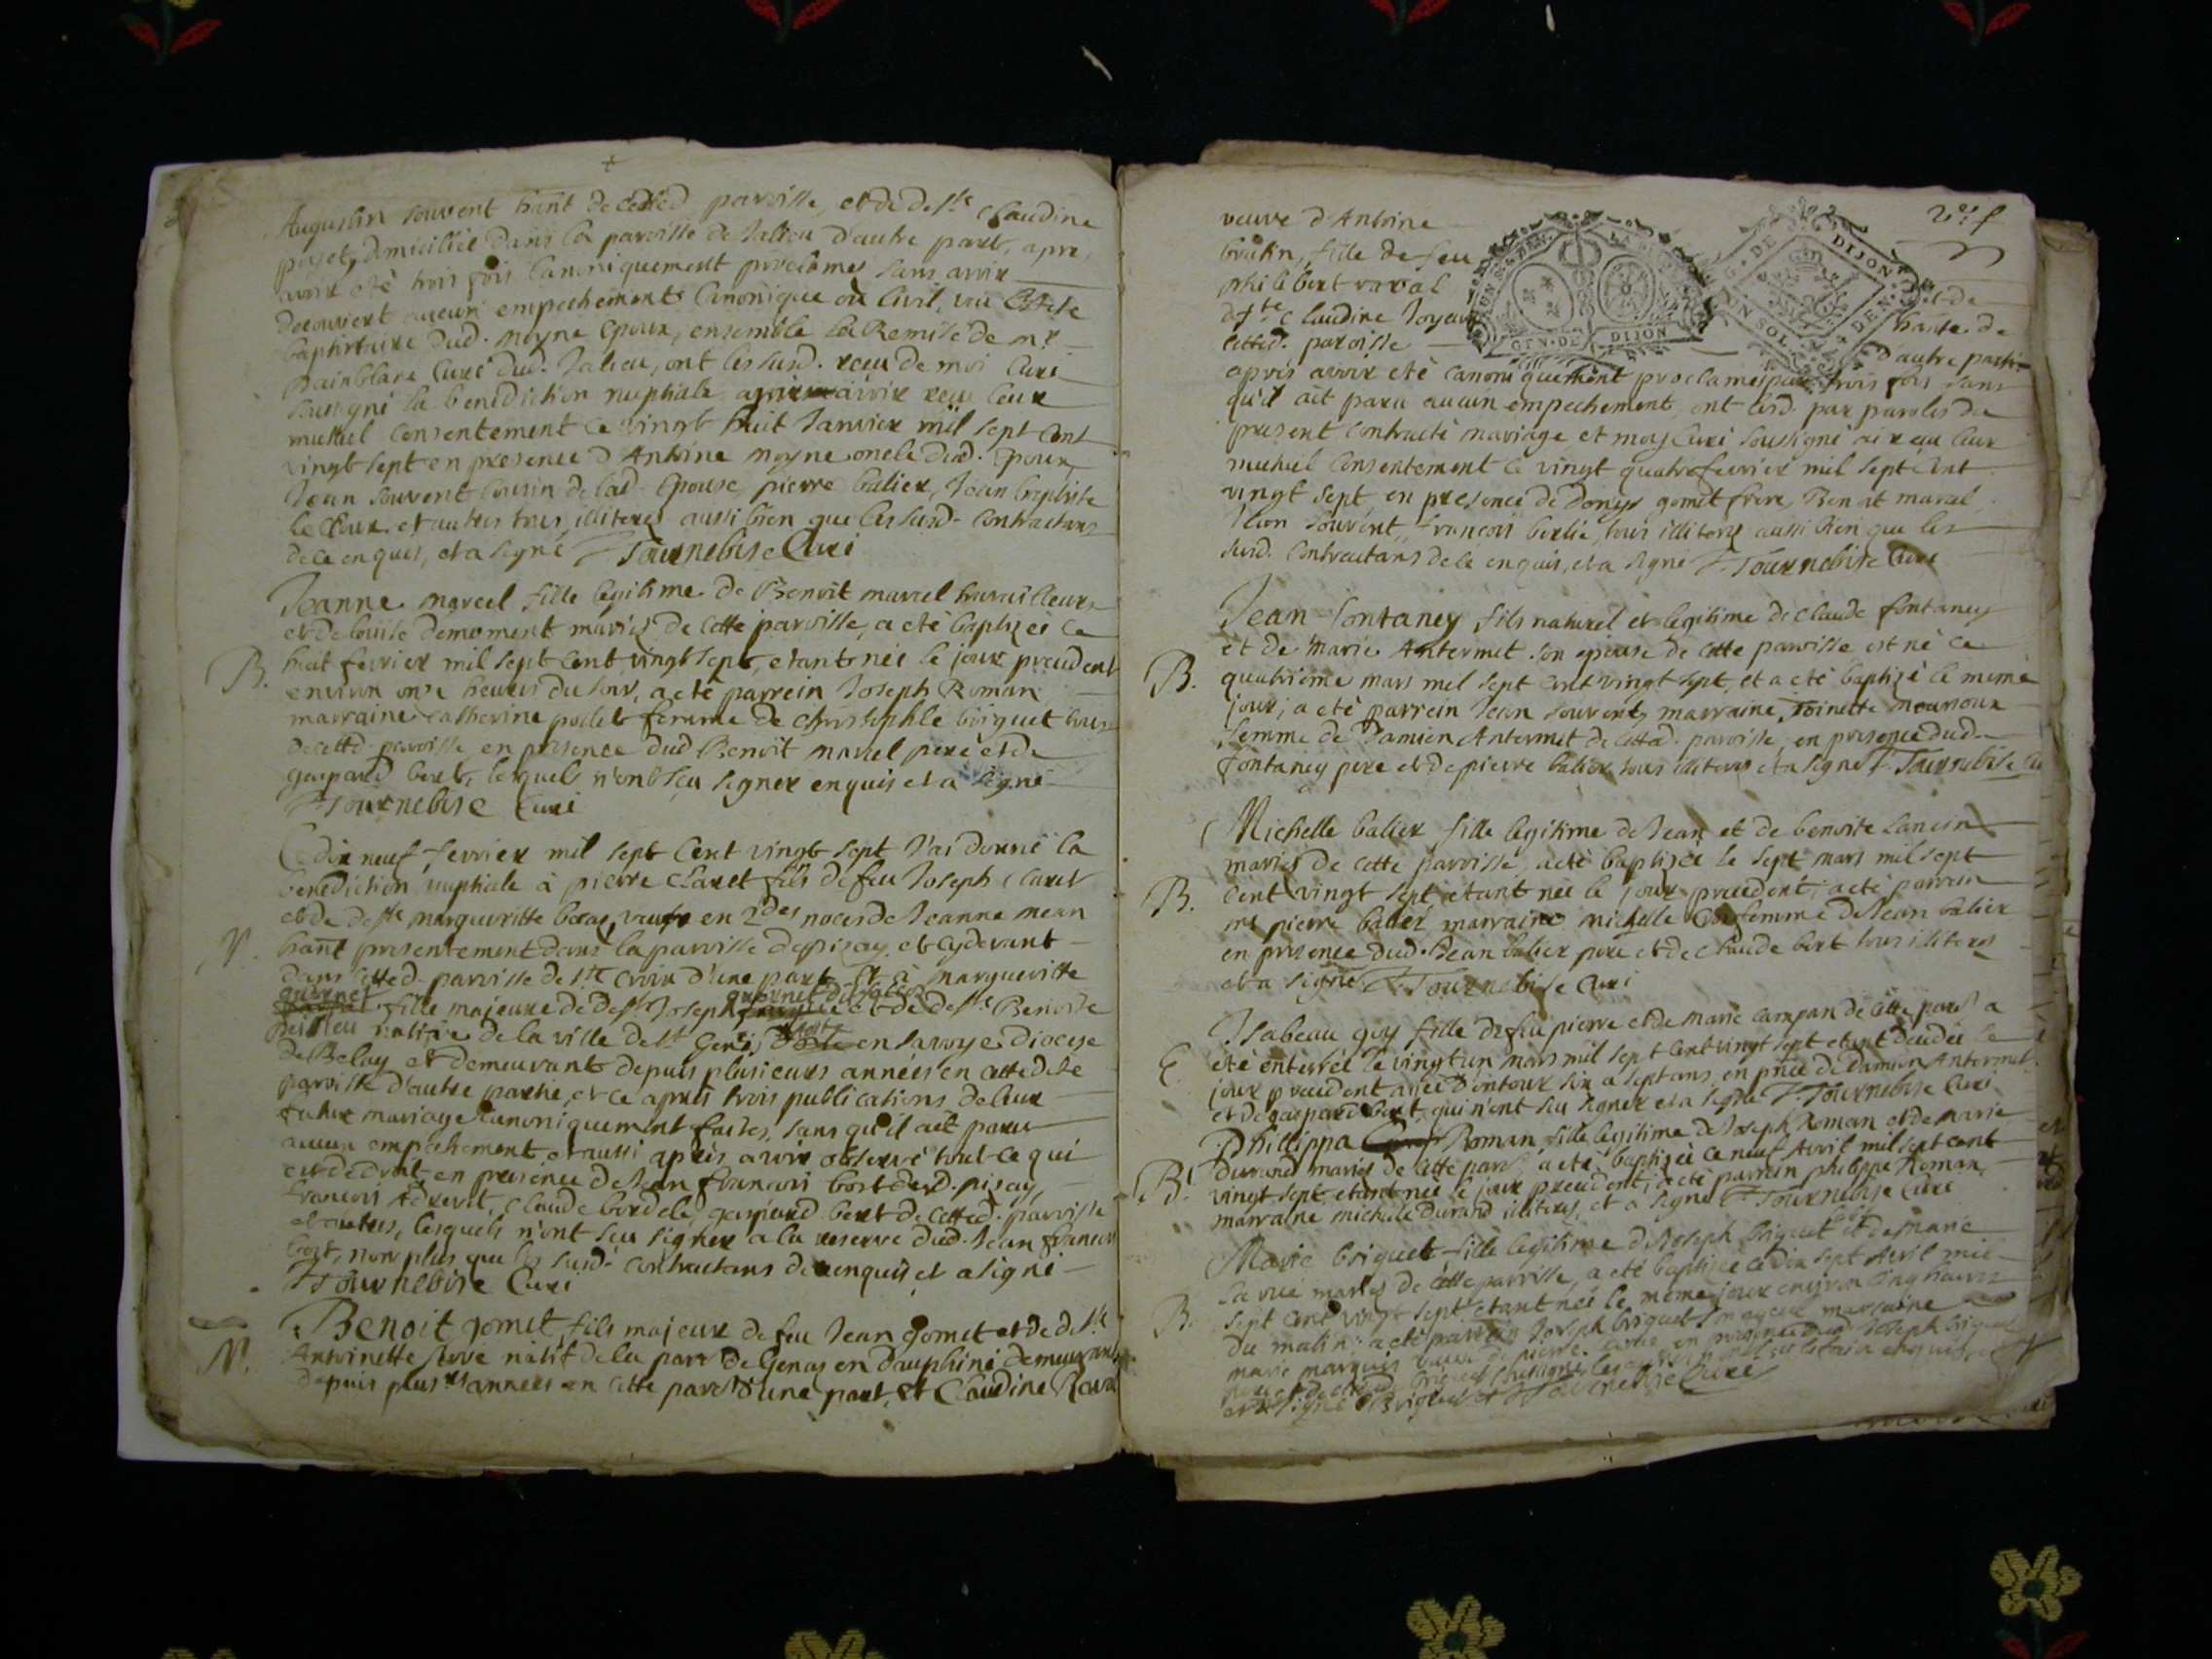 Augustin souvent hant de cetted paroisse, et de deffte Claudine
pojet, domiciliée dans la paroisse de Jalieu d'autre part, apre
avoir eté trois fois Canoniquement proclames sans avoir
decouvert aucun empechement Canonique ou Civil, vu
baptistaire dud. moyne Epoux, ensemble la Remise de mr
painblanc Curé dud. Jalieu, ont les susd. receu de moi Curé
soussigné la benediction nuptiale avoir receu leur
mutuel consentement ce vingt huit Janvier mil sept cent
vingt sept en presence d Antoine moyne oncle dud. Epoux,
Jean souvent cousin de lad. Epouse, pierre balier, Jean baptiste
et autres tous illiteres aussi bien que les susd. contractans
de ce enquis, et a signé F Tournebise Curé
Jeanne marcel fille legitime de Benoit marcel travailleur
et de louise demoment mariés de cette paroisse, a eté baptizée ce
B. huit fevrier mil sept cent vingt sept, etant née le jour precedent
environ onze heures du soir, a eté parrein Joseph Roman
marraine catherine pollet femme de christophle briguet tous
de cetted. paroisse en presence dud Benoit marcel pere et de
gaspard bert, lesquels n'ont sçu signer enquis et a signé
F Tournebise Curé
Ce dix neuf fevrier mil sept cent vingt sept J'ai donné la
benediction nuptiale à pierre Claret fils de feu Joseph Claret
et de deffte margueritte veufe en 2des noces de Jeanne mean
hant presentement dans la paroisse de pizay et cydevant
dans cetted. paroisse de ste croix d'une part Et à margueritte
fille majeure de deft Joseph et de deffte Benoite
native de la ville de st Genis en savoye diocese
de Belay et demeurante depuis plusieurs années en cette dite
paroisse d'autre partie, et ce apres trois publications de leur
futur mariage canoniquement faites, sans qu'il ait paru
aucun empechement et aussi apres avoir observé tout ce qui
est de droit, en presence de Jean francois bort dud. pizay,
francois Claude gaspard bert de cetted. paroisse
et autres, lesquels n'ont sçu signer a la reserve dud. Jean francois
bort, non plus que les susd. contractans de ce enquis et a signé
F Tournebise Curé
Benoit gomet fils majeur de feu Jean gomet et de deffte
M. Antoinette natif de la parr de Genas en dauphiné demeurant
depuis plusrs années en cette parr d'une part, et Claudine
2e f
veuve d'Antoine
fille de feu
philibert raval
deffte Claudine
cetted. paroisse
et de
hante de
d'autre partie
GEN. DE DIJON
apres avoir eté canoniquement proclames par trois fois sans
qu'il ait paru aucun empechement ont lesd. par paroles de
present contracté mariage et moy Curé soussigné ai receu leur
mutuel consentement ce vingt quatre fevrier mil sept cent
vingt sept, en presence de Denys gomet frere, Benoit marcel
souvent, francois berlie, tous illiteres aussi bien que les
susd. contractans de ce enquis, et a signé F. Tournebise Curé
Jean fontaney fils naturel et legitime de claude fontaney
et de marie Antermet son epouse de cette paroisse est né ce
B. quatrieme mars mil sept cent vingt sept, et a eté baptizé le meme
jour, a eté parrein Jean souvent, marraine, Toinette
femme de Damien Antermet de cetted. paroisse, en presence dud.
fontaney pere et de pierre balier tous illiteres et a signé F. Tournebise
Michelle balier fille legitime de Jean et de benoite
mariés de cette paroisse a eté baptizée le sept mars mil sept
B. cent vingt sept etant née le jour precedent; a eté parrein
mr pierre balier marraine michelle femme de Jean balier
en presence dud. Jean balier pere et de claude bert tous illiteres
et a signé F. Tournebise Curé
Isabeau guy fille de feu pierre et de marie campan de cette paroisse a
E. eté enterrée le vingt un mars mil sept cent vingt sept etant decedée le
jour precedent agée d'entour six a sept ans, en pnce de Damien Antermet
et de gaspard bert, qui n'ont sçu signer et a signé F. Tournebise Curé
Philippa Roman fille legitime de Joseph Roman et de marie
B. durand mariés de cette parr a eté baptizée ce neuf Avril mil sept cent
vingt sept etant née le jour precedent, a eté parrein philippe Roman,
marraine michelle durand illiteres, et a signé F. Tournebise Curé
Marie briguet fille legitime de Joseph briguet et de marie
mariés de cette paroisse, a eté baptizée ce dix sept Avril mil
B. sept cent vingt sept etant née le meme jour environ cinq heures
du matin; a eté parrein Joseph briguet marraine
marie marquis en presence dud Joseph briguet
et a signé Briguet et F Tournebise Curé